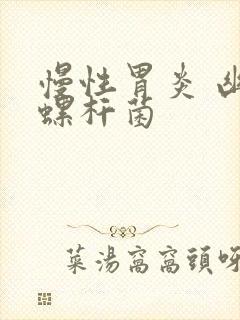 慢性胃炎 幽
螺杆菌
菜湯窩窩頭呀